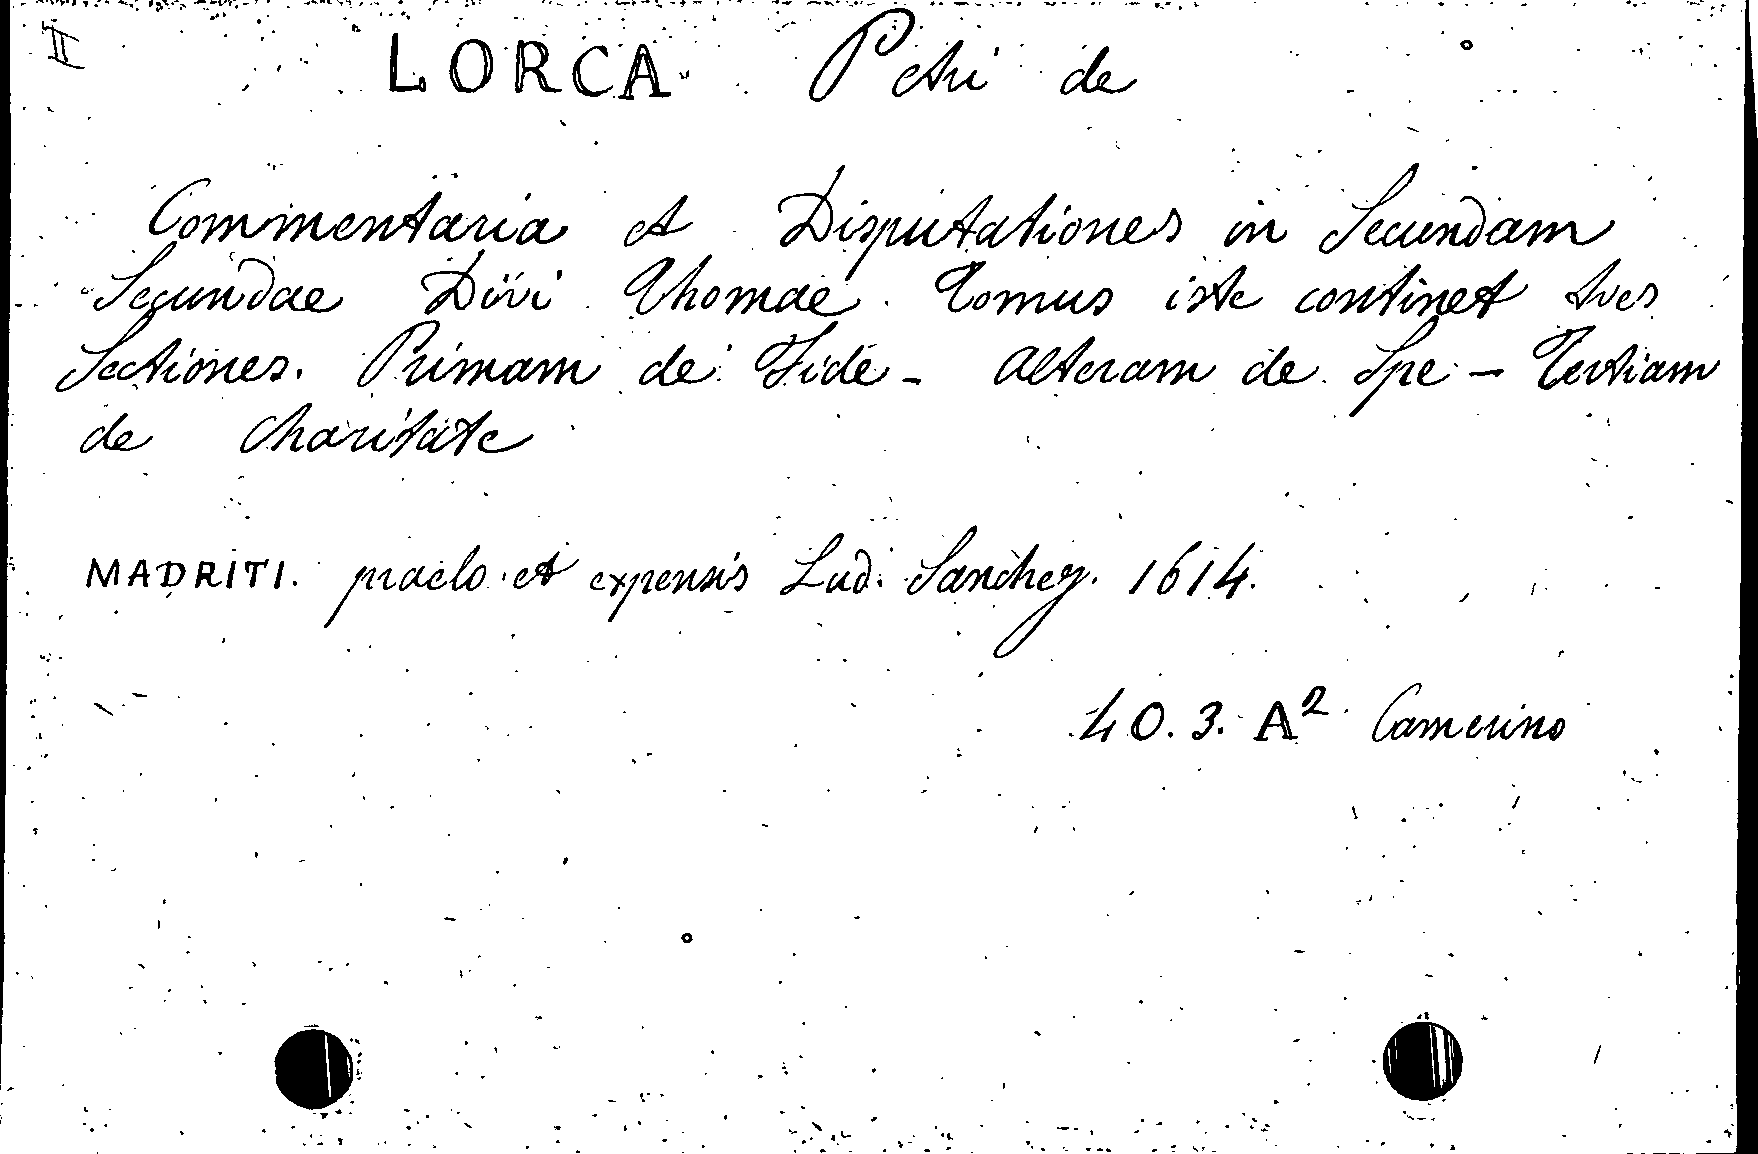 II
LORCA Petri de
Commentaria et Disputationes in Secundam
Secundae Divi Thomae. Tomus iste continet tres
Sectiones. Primam de Fide - Alteram de Spe - Tertiam
de Charitate
MADRITI. praelo et expensis Lud. Sanchez. 1614.
40. 3. A² Camerino